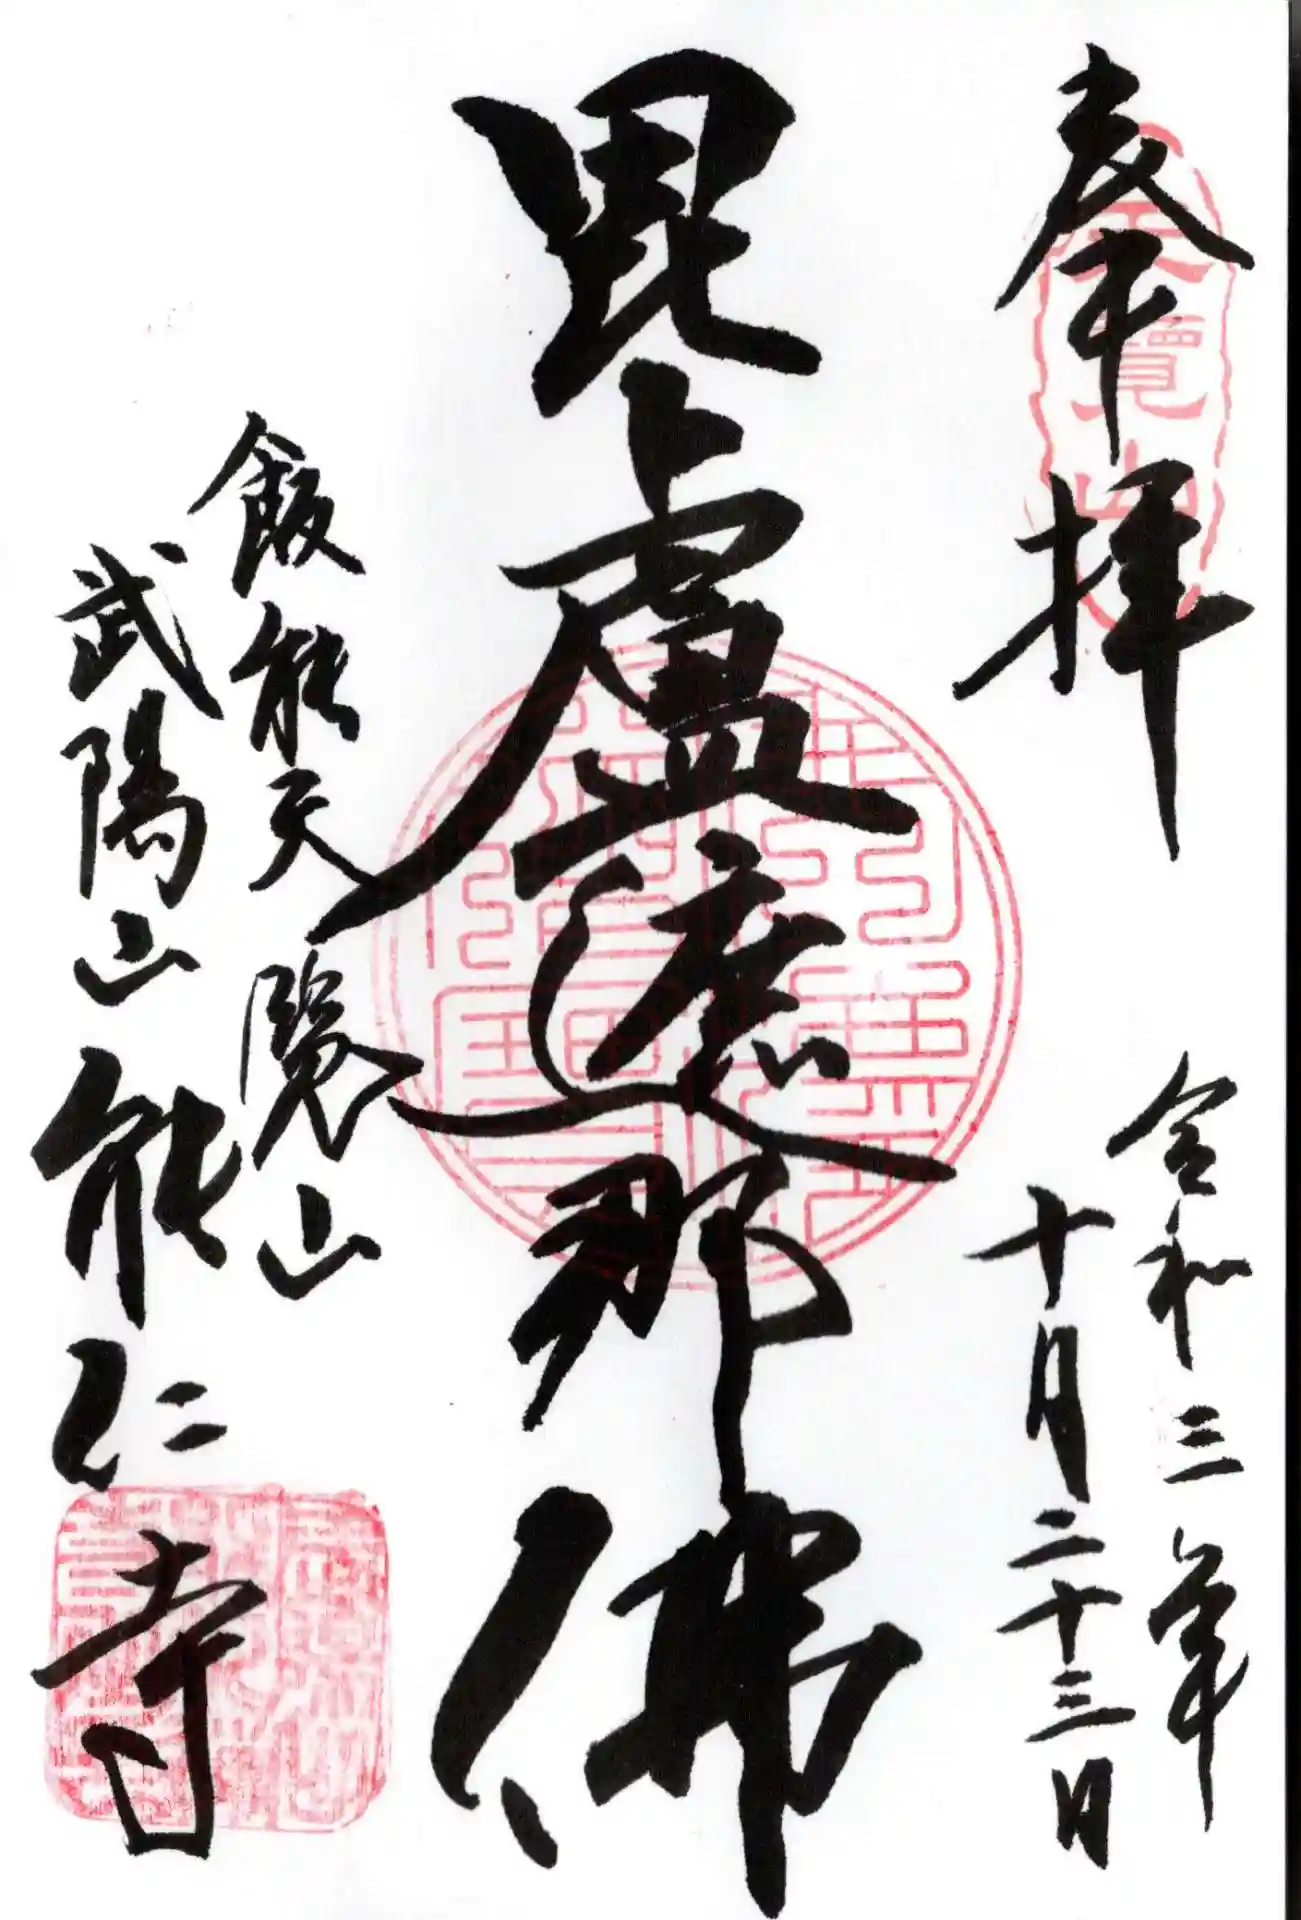 奉拝
令和三年
十月二十三日
毘盧遮那佛
飯能天覧山
武陽山能仁寺
天覧山